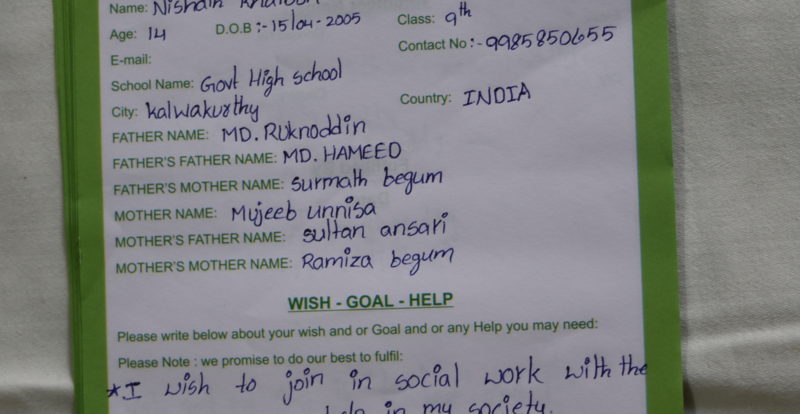 Name: Nishath
Age: 14 D.O.B :- 15/04-2005 Class: 9th
E-mail: Contact No :- 9985850655
School Name: Govt High school
City: Kalwakurthy Country: INDIA
FATHER NAME: MD. Ruknoddin
FATHER'S FATHER NAME: MD. HAMEED
FATHER'S MOTHER NAME: Surmath begum
MOTHER NAME: Mujeeb unnisa
MOTHER'S FATHER NAME: sultan ansari
MOTHER'S MOTHER NAME: Ramiza begum
WISH - GOAL - HELP
Please write below about your wish and or Goal and or any Help you may need:
Please Note : we promise to do our best to fulfil:
*I wish to join in social work with the
in my society.